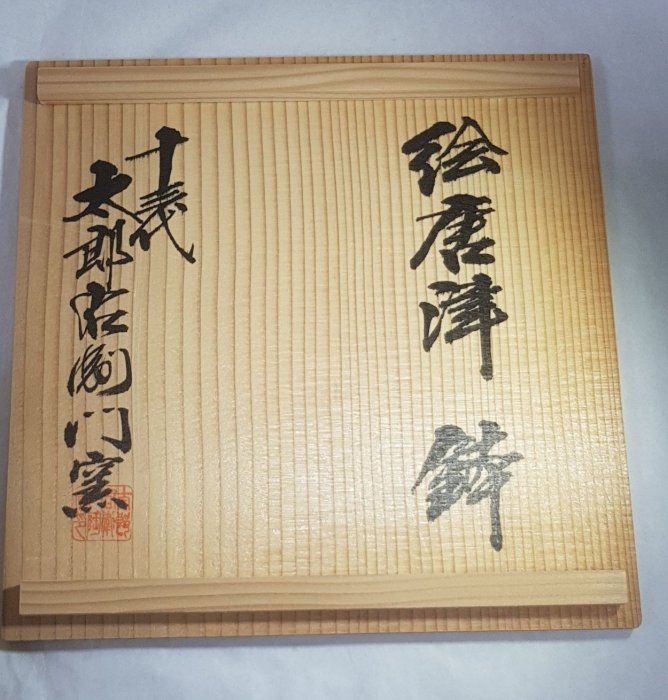 絵唐津 鉢
十三代
太郎右衛門窯